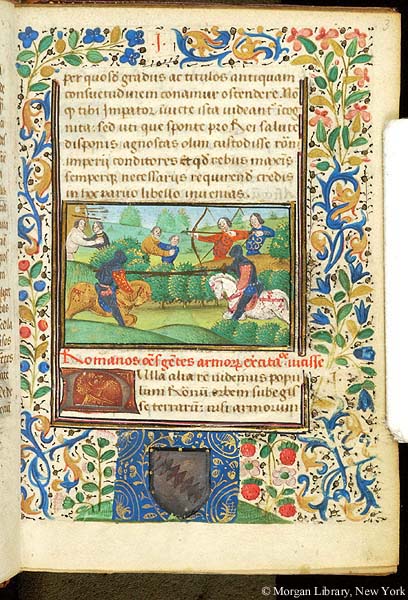 I
per quosdā gradus ac titulos antiquam
consuetudinem conamur ostendere. Nō
q̄ tibi Impator īuicte ista videantr̄ icog
nita. sed uti que sponte pro Rei salute
disponis agnoscas olim custodisse romī
imperii conditores et qd rebus maxīs
semperq̄ necessariis requirend credis
in hoc paruo libello inuenias.
Romanos oēs gētes armorꝝ exercita.e uicisse
Nulla alia re uidemus popu
lum Romū orbem subegiſ
se terrarū: nisi armorum
© Morgan Library, New York